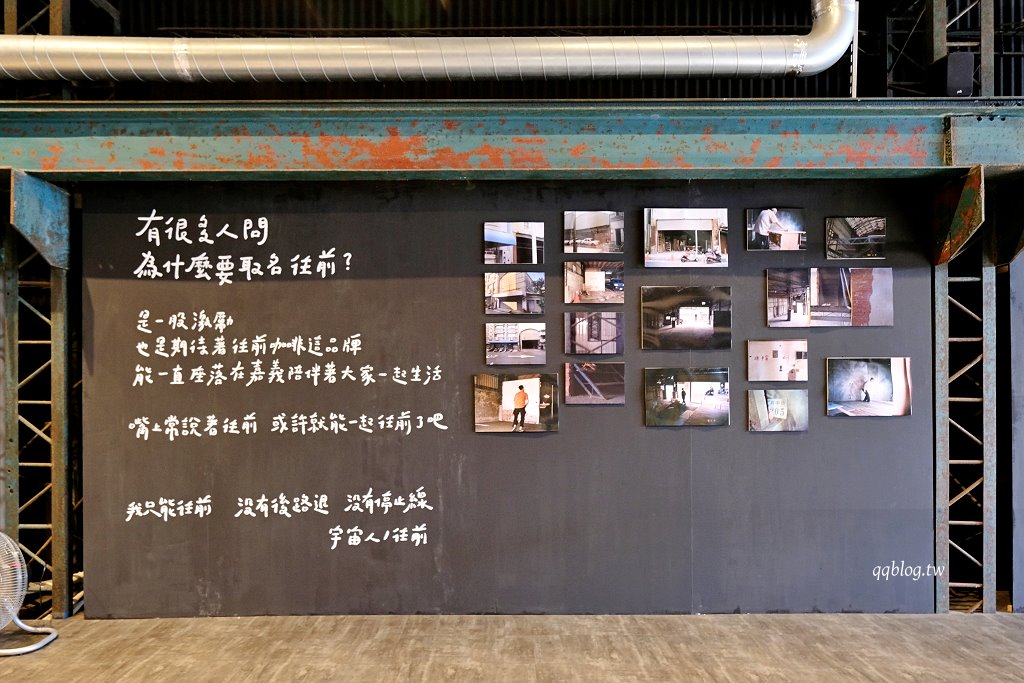 有很多人問
為什麼要取名往前?
是一股激勵
也是期待著往前咖啡這品牌
能一直座落在嘉義陪伴著大家一起生活
嘴上常說著往前 或許就能一起往前了吧
我只能往前 沒有後路退 沒有停止線
宇宙人/往前
qqblog.tw